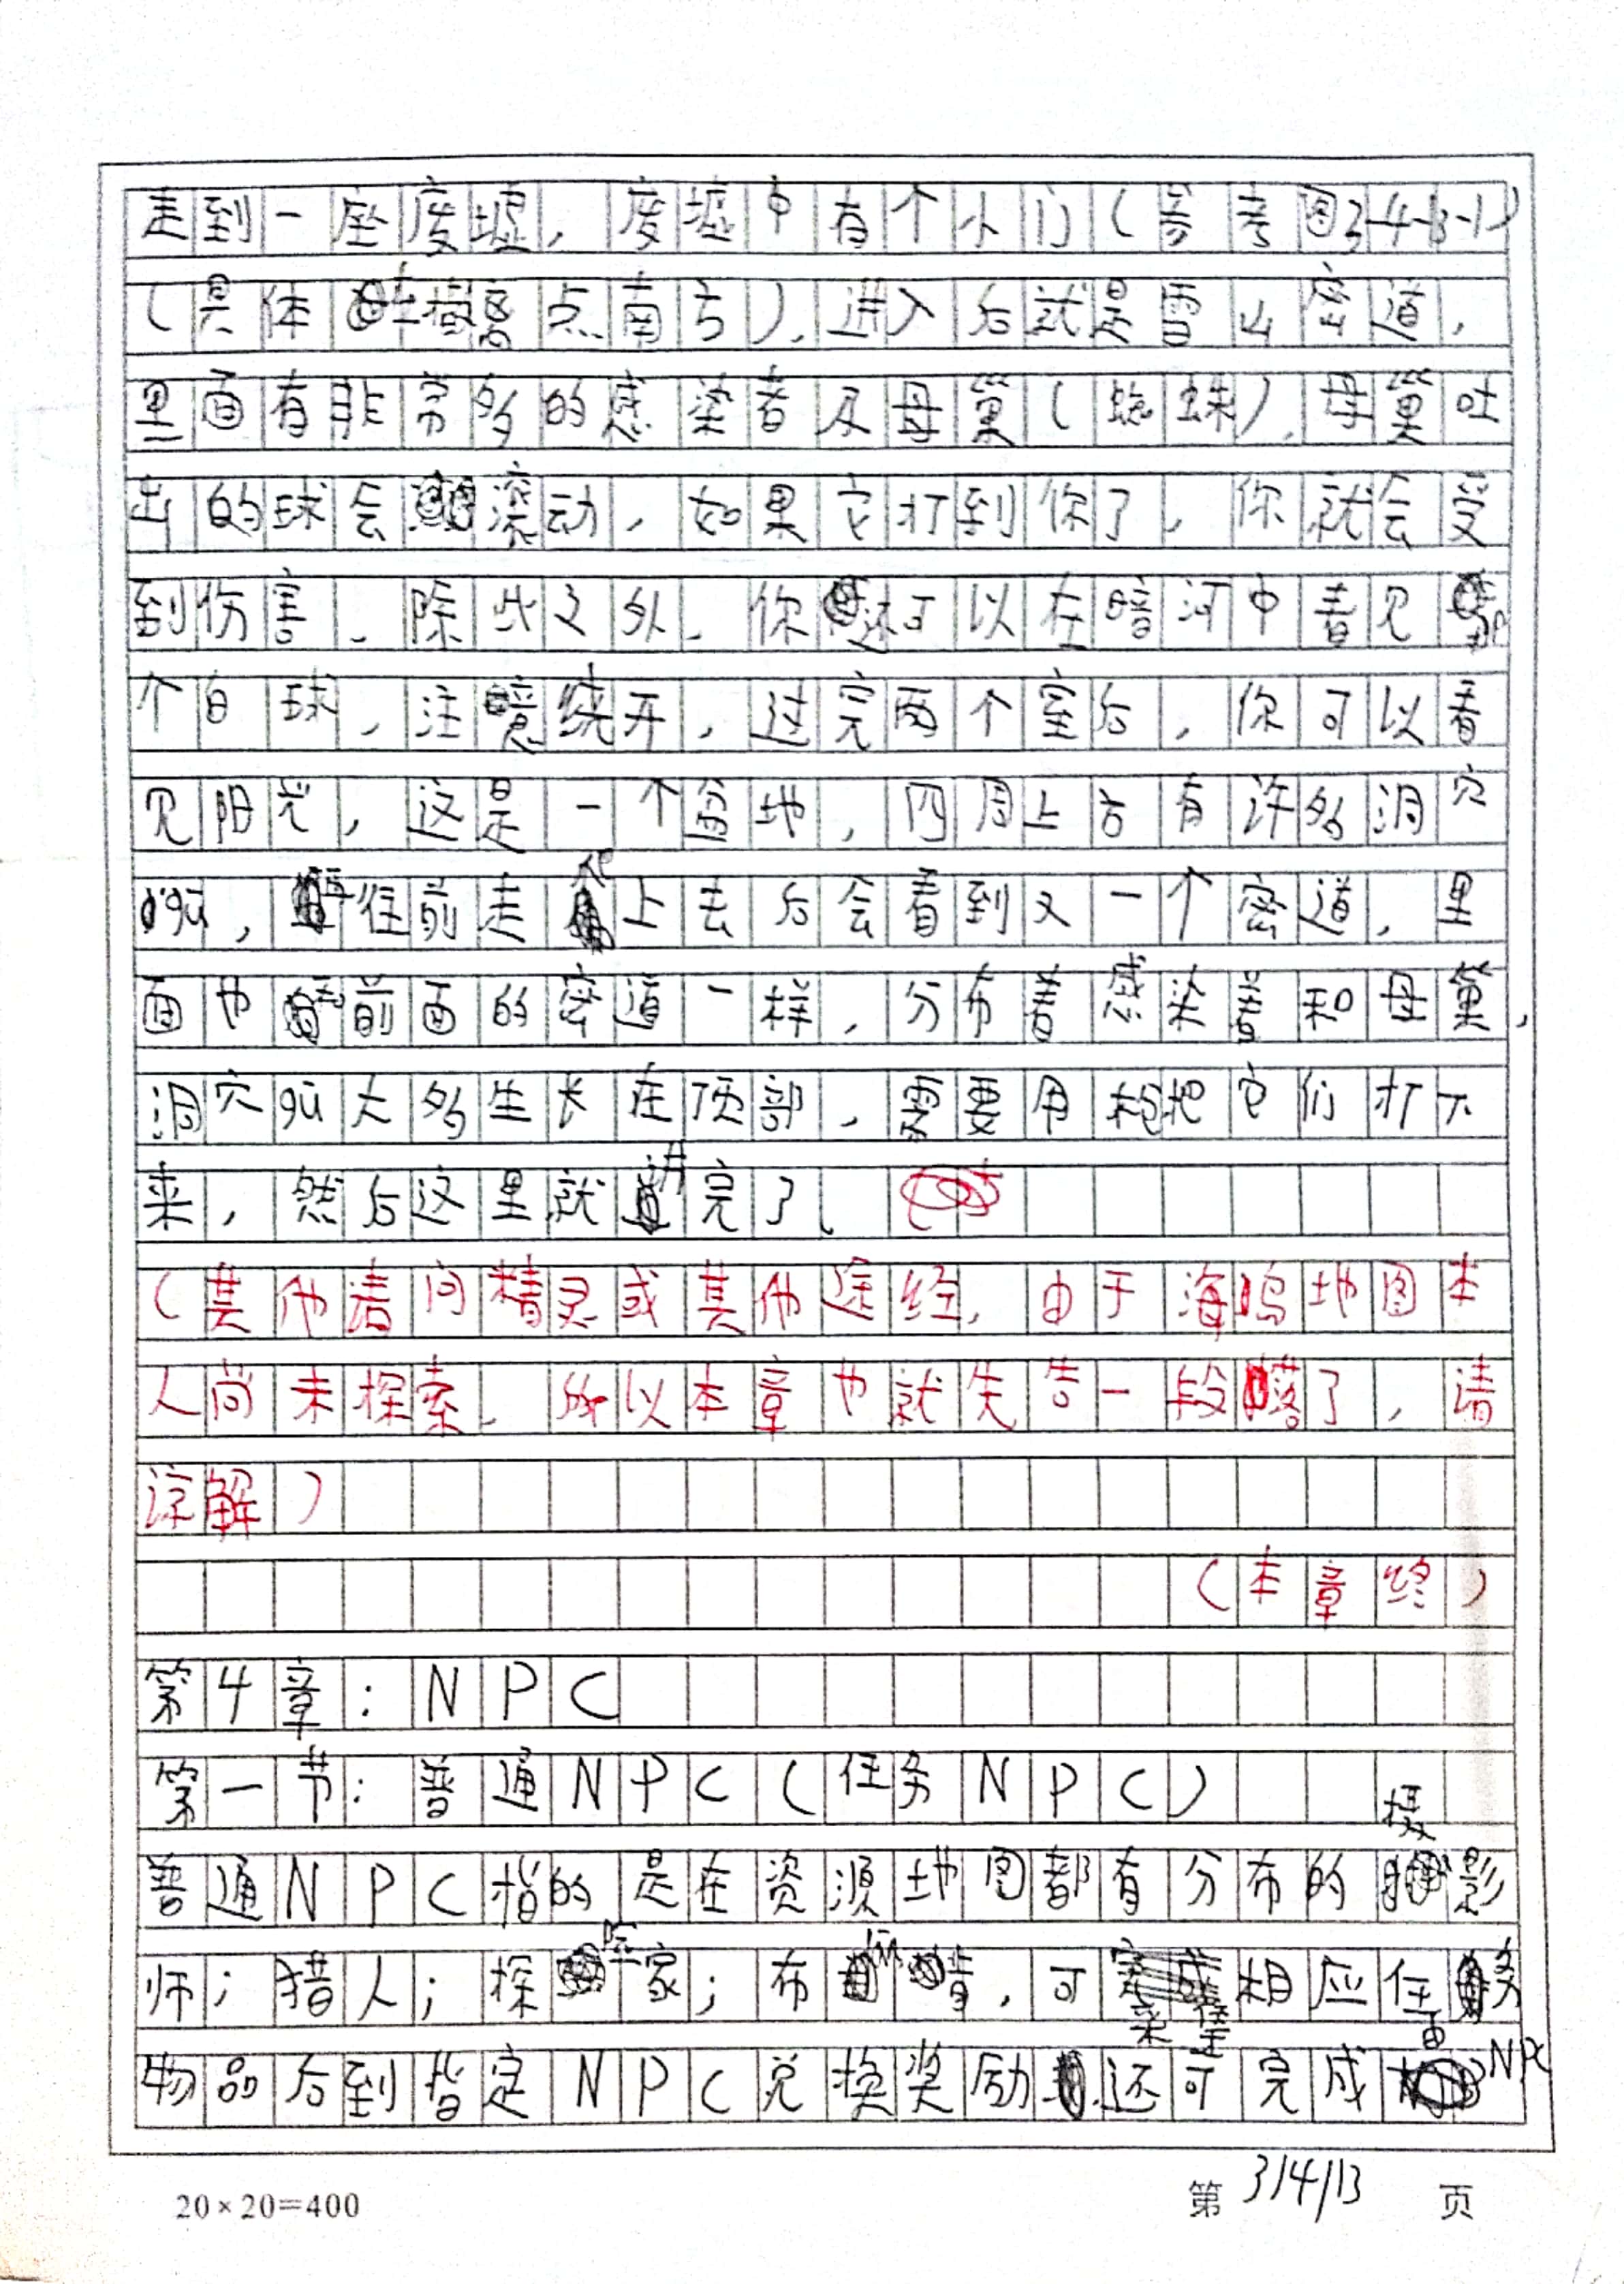 走到一座废墟，废墟中有个小门（参考图3-4-3-1）
（具体在撤离点南方），进入后就是雪山密道，
里面有非常多的感染者及母巢（蜘蛛），母巢吐
出的球会滚动，如果它打到你了，你就会受
到伤害。除此之外，你还可以在暗河中看见
个白球，注意绕开，过完两个室后，你可以看
见阳光，这是一个盆地，四周上方有许多洞穴
，往前走爬上去后会看到又一个密道，里
面也前面的密道一样，分布着感染者和母巢，
洞穴gū大多生长在顶部，需要用枪把它们打下
来，然后这里就讲完了。
（其他请问精灵或其他途经，由于海鸣地图本
人尚未探索，所以本章也就先告一段落了，请
谅解）
（本章终）
第4章：NPC
第一节：普通NPC（任务NPC）
普通NPC指的是在资源地图都有分布的摄影
师；猎人；探险家；布，可采集相应任务
物品后到指定NPC兑换奖励，还可完成NPC
20×20=400
第 3/4/13 页